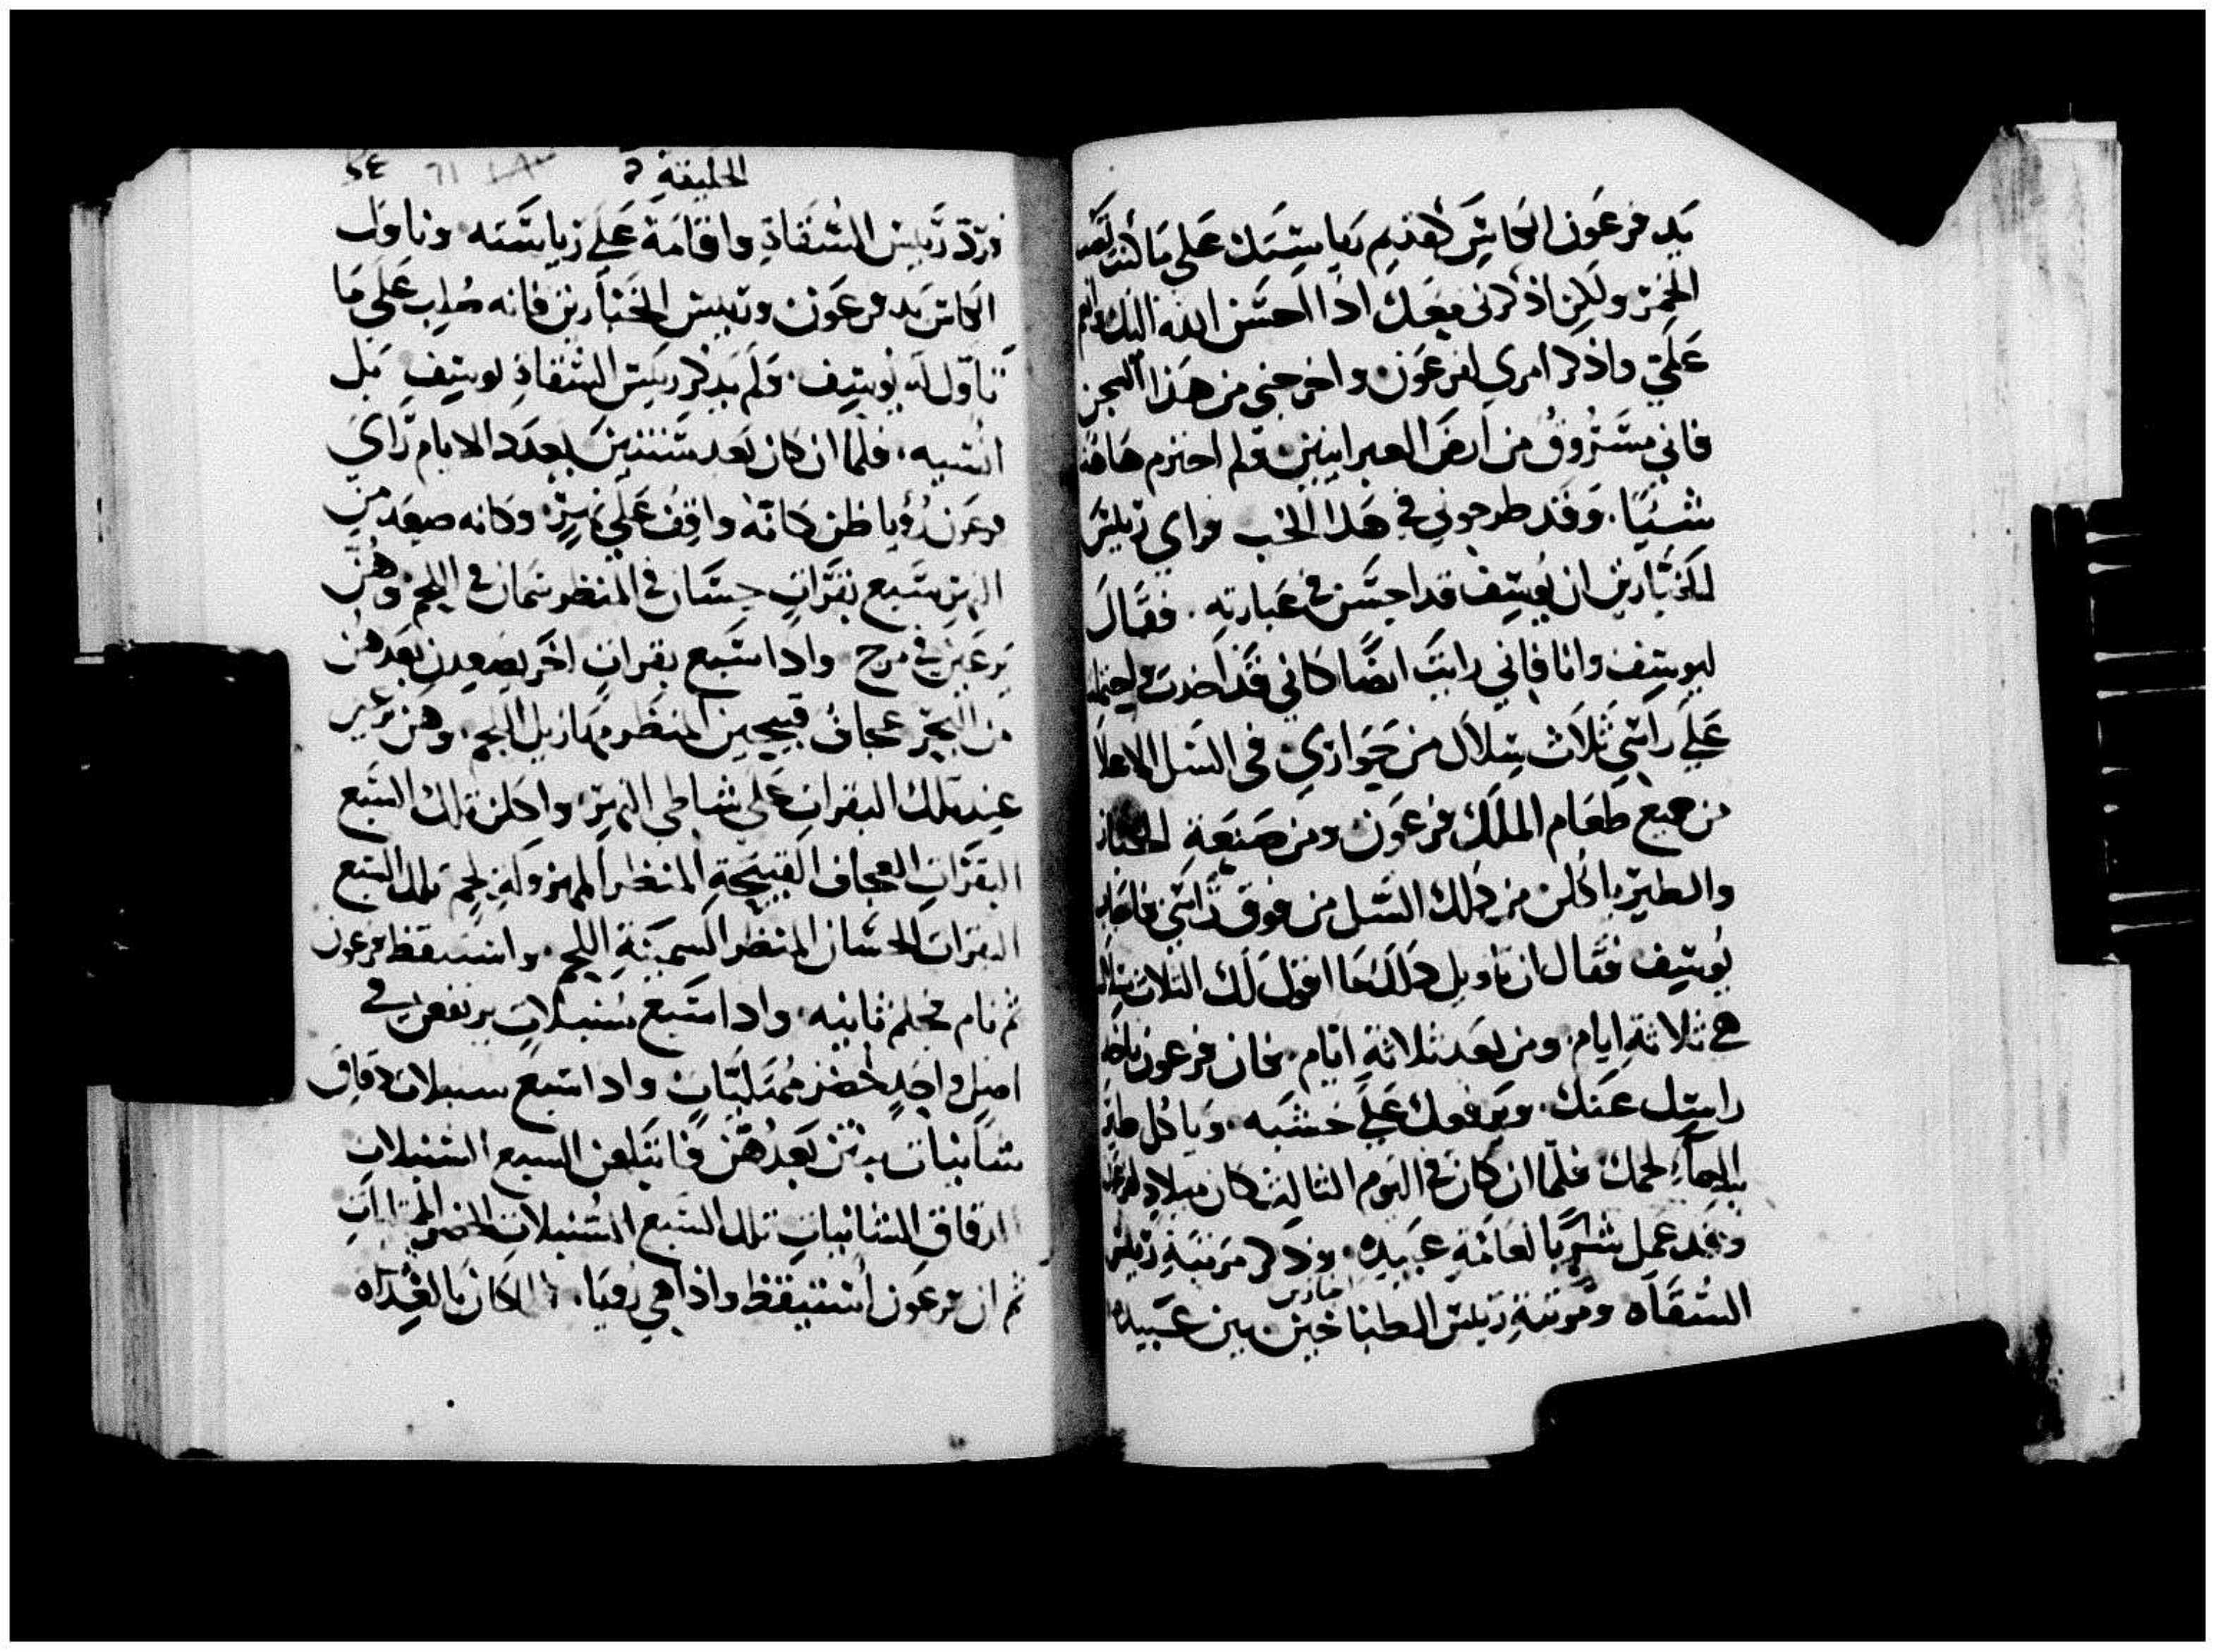 يد فرعون الكاس كقديم رياستك على ما كنت تعصر
الخمر ولكن اذكرني معك اذا احسن الله اليك وانعم
علي واذكر امري لفرعون واخرجني من هذا السجن
فاني مسروق من ارض العبرانيين ولم اجترم هاهنا
شيا. وقد طرحوني في هذا الجب فراي رييس
الخبارين ان يوسف قد احسن في عبارته. فقال
ليوسف وانا فاني رايت ايضا كاني قد اخدت
على راسي ثلاث سلال من حواري في السل الاعلا
من جميع طعام الملك فرعون ومن صنعة الخباز
والطير ياكلن من ذلك السل من فوق راسي فاجاب
يوسف فقال ان تاويل ذلك ما اقول لك الثلاث سلال
هي ثلاثة ايام ومن بعد ثلاثة ايام. فان فرعون ياخذ
راسك عنك. ويرفعك على خشبه. وياكل طير
السماء لحمك فلما ان كان في اليوم الثالث كان ميلاد فرعون
وقد عمل شربا لعامة عبيده. وذكر مرتبة رييس
خبازين
السقاه ومرتبة رييس الطباخين بين عبيده
الخليقة
فرد رييس السقاة واقامه على رياسته وناول
الكاس يد فرعون ورييس الخبارين فانه صلب على ما
تاول له يوسف. ولم يذكر رييس السقاة يوسف بل
انسيه. فلما ان كان بعد سنتين بعدد الايام راي
فرعون رويا ظن كانه واقف على نهر وكانه صعد من
النهر سبع بقرات حسان في المنظر سمان في اللحم وهن
يرعين في مرج واذا سبع بقرات اخر يصعدن بعدهن
من البحر عجاف قبيحين المنظر مهازيل اللحم. وهن يرعين
عند تلك البقرات على شاطي النهر. واكلن تلك السبع
البقرات العجاف القبيحة المنظر المهزولة لحم تلك السبع
البقرات الحسان المنظر السمينة اللحم. واستيقظ فرعون
ثم نام فحلم ثانيه. واذا سبع سنبلات يرتفعن في
اصل واحد خضر ممتليات واذا سبع سنبلات دقاق
شانيات ينبتن بعدهن فابتلعن السبع السنبلات
الدقاق الشانيات تلك السبع السنبلات الخضر الممتليات
ثم ان فرعون استيقظ واذا هي رويا. فلما كان بالغداه